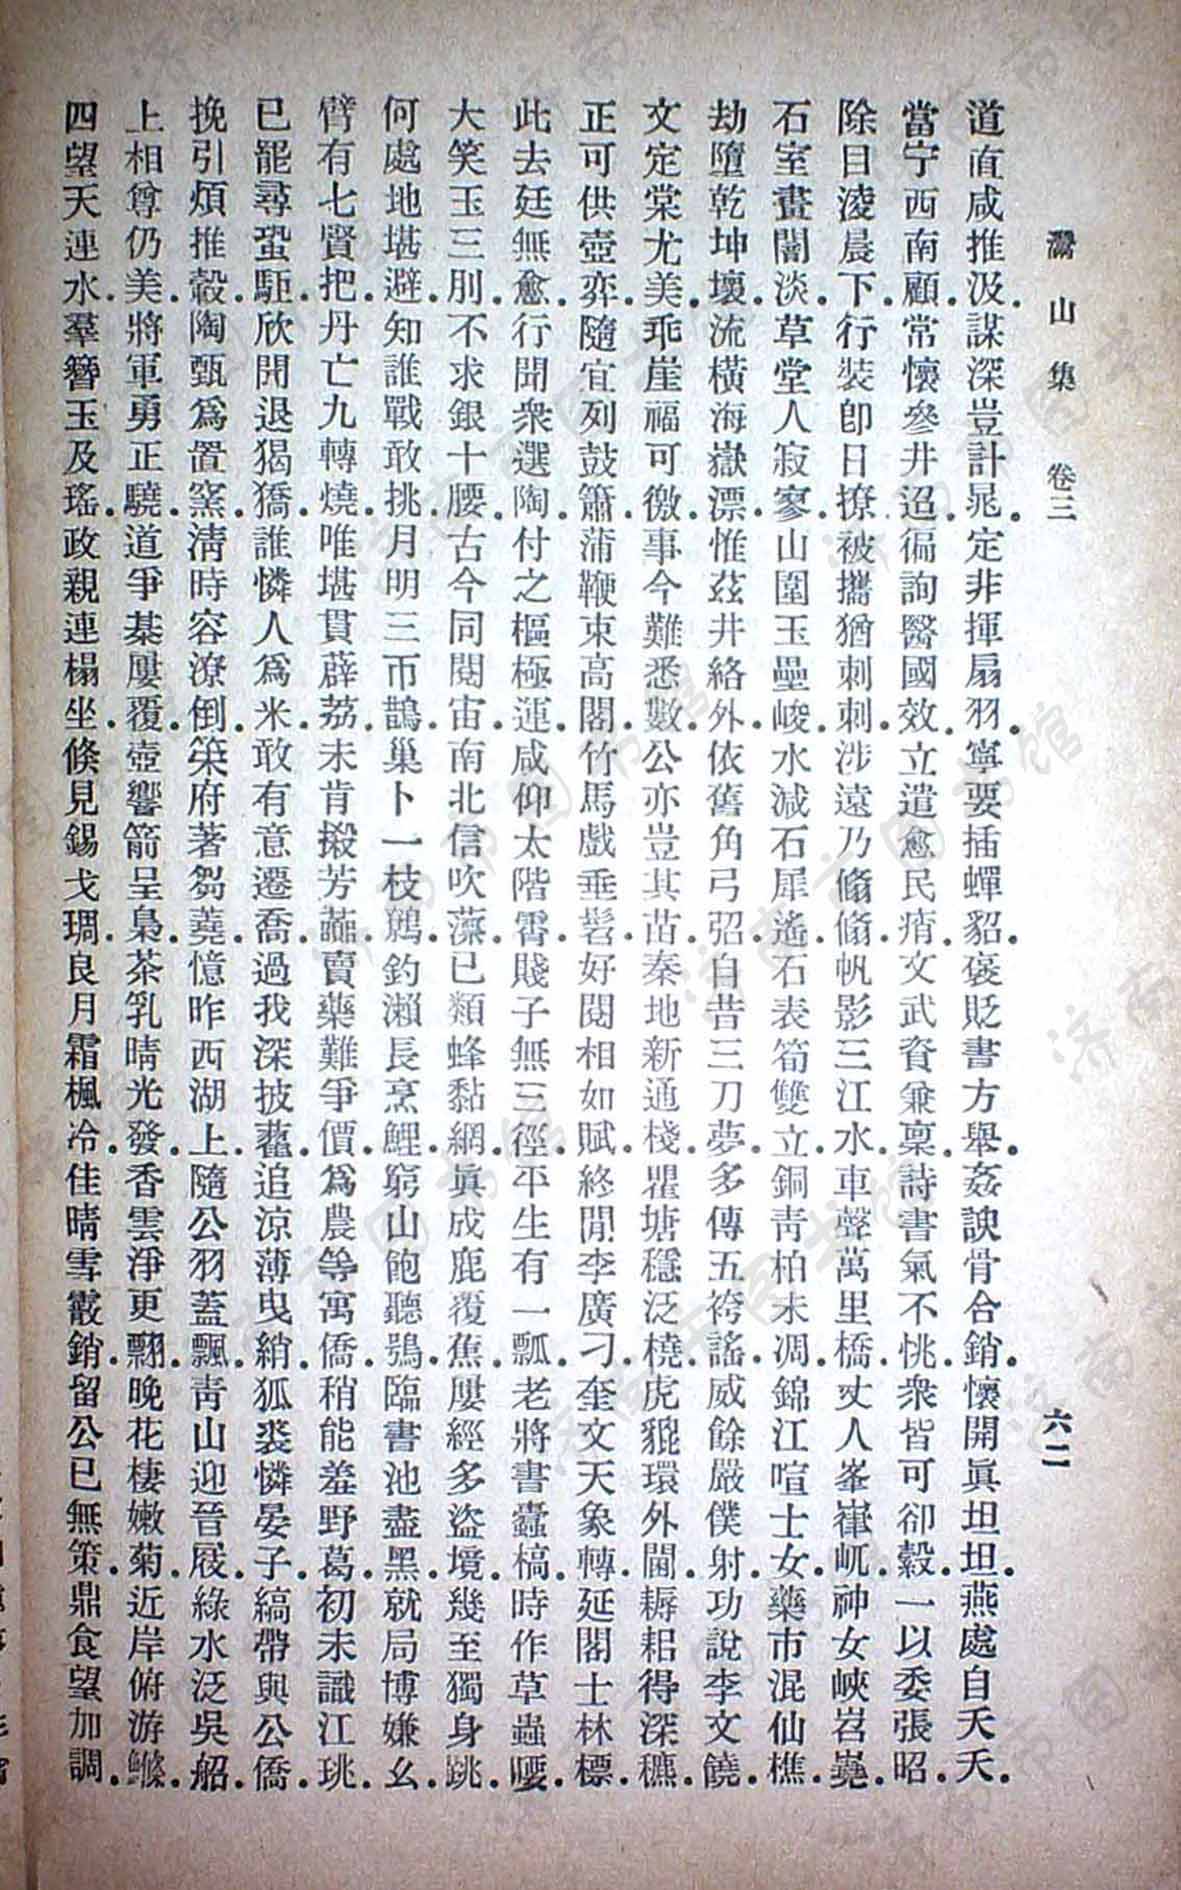 灊山集 卷三 六二
道直咸推汲。謀深豈計晁。定非揮扇羽。寧要插蟬貂。褒貶書方舉。姦諛骨合銷。懷開眞坦坦。燕處自夭夭。
當宁西南顧。常懷參井迢。徧詢醫國效。立遣愈民痟。文武資兼稟。詩書氣不恌。衆皆可卻縠。一以委張昭。
除日淩晨下。行裝卽日撩。被攜猶刺刺。涉遠乃翛翛。帆影三江水。車聲萬里橋。丈人峯嵂屼。神女峽岧嶤。
石室畫闇淡。草堂人寂寥。山圍玉壘峻。水減石犀遙。石表筍雙立。銅靑柏未凋。錦江喧士女。藥市混仙樵。
劫墮乾坤壞。流橫海嶽漂。惟茲井絡外。依舊角弓弨。自昔三刀夢。多傳五袴謠。威餘嚴僕射。功說李文饒。
文定棠尤美。乖崖福可徼。事今難悉數。公亦豈其苗。秦地新通棧。瞿塘穩泛橈。虎貔環外閫。耨耜得深穮。
正可供壺弈。隨宜列鼓簫。蒲鞭束高閣。竹馬戲垂髫。好閱相如賦。終閒李廣刁。奎文天象轉。延閣士林標。
此去廷無愈。行聞衆選陶。付之樞極運。咸仰太階霄。賤子無三徑。平生有一瓢。老將書蠹槁。時作草蟲喓。
大笑玉三刖。不求銀十腰。古今同閱宙。南北信吹藻。已類蜂黏網。眞成鹿覆蕉。屢經多盜境。幾至獨身跳。
何處地堪避。知誰戰敢挑。月明三帀鵲。巢卜一枝鷦。釣瀨長烹鯉。窮山飽聽鴞。臨書池盡黑。就局博嫌幺。
臂有七賢把。丹亡九轉燒。唯堪貫薜荔。未肯搬芳蘸。賣藥難爭價。爲農等寓僑。稍能羞野葛。初未識江珧。
已罷尋蛩駏。欣閒退猲獢。誰憐人爲米。敢有意遷喬。過我深披藿。追涼薄曳綃。狐裘憐晏子。縞帶與公僑。
挽引煩推轂。陶甄爲置窯。淸時容潦倒。䇿府著芻蕘。憶昨西湖上。隨公羽蓋飄。靑山迎晉屐。綠水泛吳船。
上相尊仍美。將軍勇正驍。道爭棊屢覆。壺響箭呈梟。茶乳晴光發。香雲淨更翻。晚花棲嫩菊。近岸俯游鰷。
四望天連水。羣簪玉及瑤。政親連榻坐。倏見錫戈琱。良月霜楓冷。佳晴雪霰銷。留公已無策。鼎食望加調。